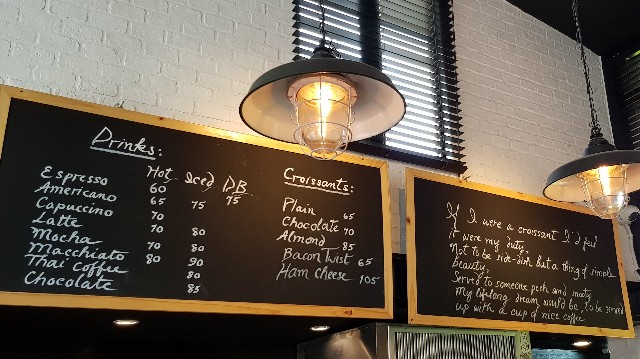 Drinks:
Hot Iced DB
Espresso 60
Americano 65 75 75
Capuccino 70
Latte 70 80
Mocha 70 80
Macchiato 80 90
Thai Coffee 80
Chocolate 85
Croissants:
Plain 65
Chocolate 70
Almond 85
Bacon Twist 65
Ham Cheese 105
If I were a croissant I'd feel
it were my duty.
Not to be side-dish but a thing of simple
beauty.
Served to someone posh and
My lifelong dream would be, to be served
up with a cup of nice coffee